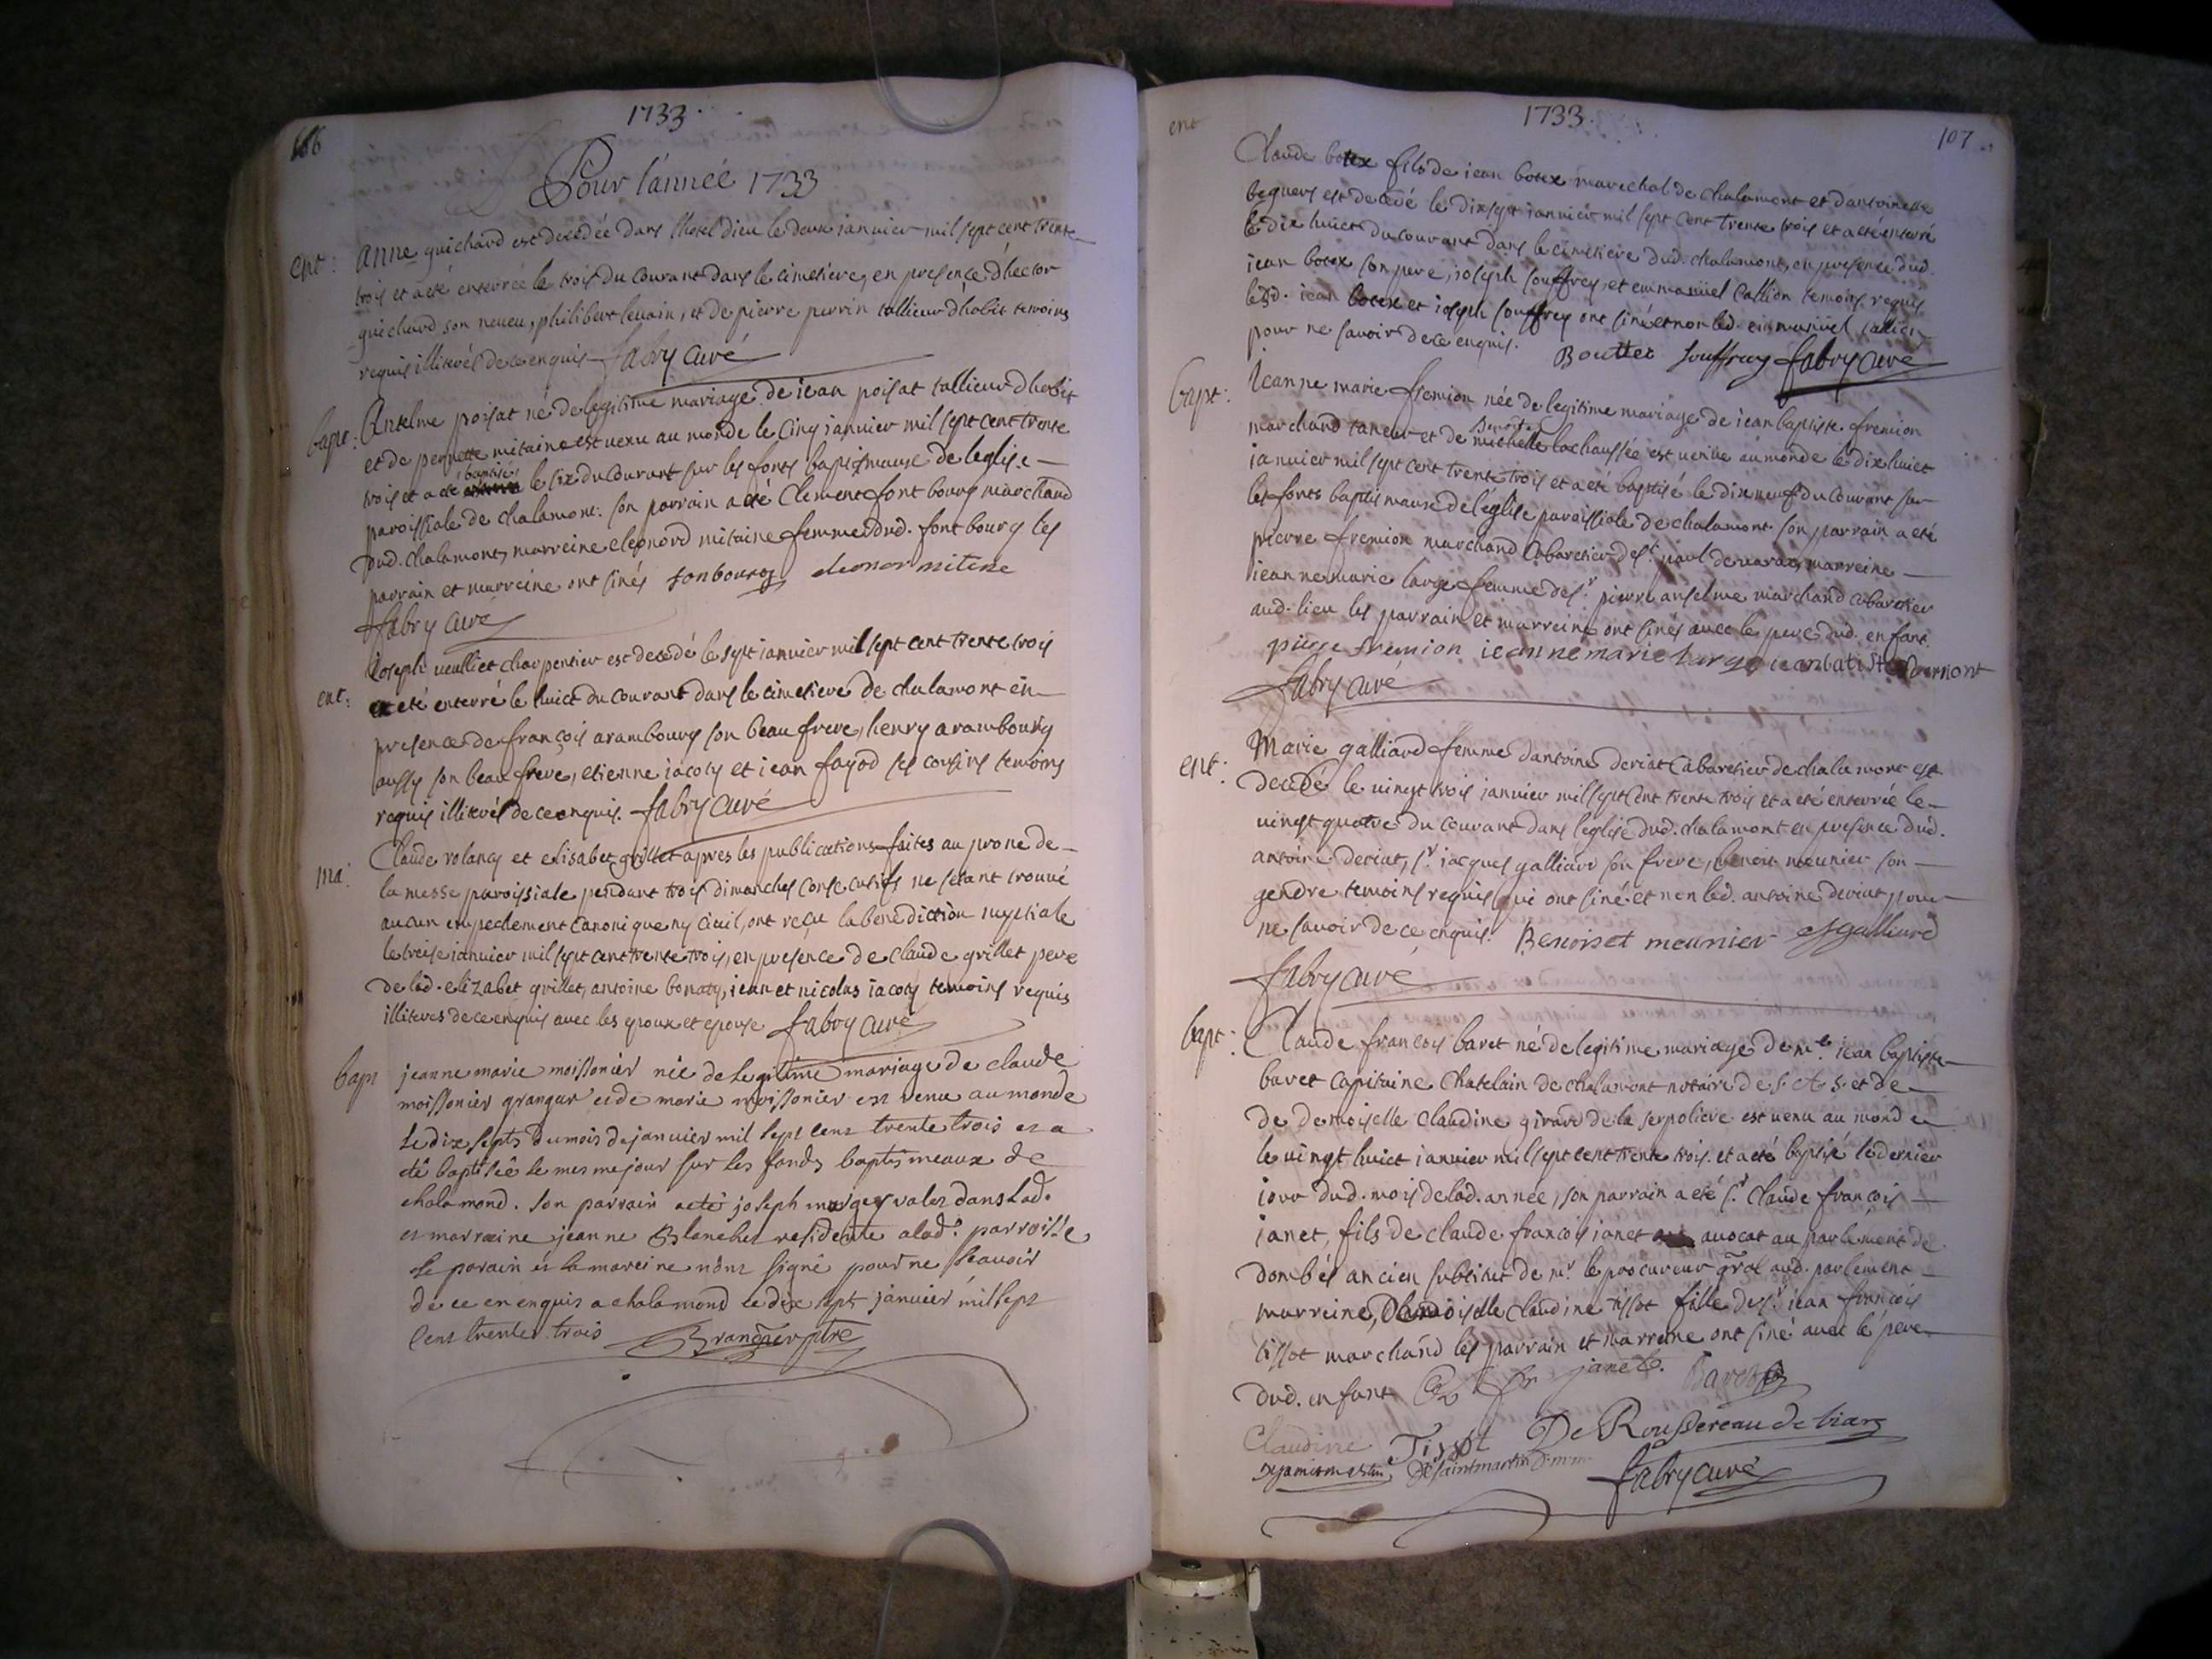 1733.
106
Pour l'année 1733
ent: anne guichard est decedée dans l'hotel dieu le deux ianvier mil sept cent trente
trois et a eté enterrée le trois du courant dans le cimetiere, en presence d'hector
guichard son neveu, philibert levain, et de pierre perrin tallieur d'habit temoins
requis illiterés de ce enquis fabry curé
bapt: Anselme poisat né de legitime mariage de iean poisat tallieur d'habit
et de pernette mitaine est venu au monde le cinq ianvier mil sept cent trente
baptisé
trois et a eté le six du courant sur les fonts baptismaux de leglise
paroissiale de chalamont. son parrain a eté Clement font bourg marchand
dud. chalamont, marreine eleonord mitaine femme dud. font bourg les
parrain et marreine ont sinés fonbourg eleonor mitene
fabry curé
ent: Ioseph veulliet charpentier est decedé le sept ianvier mil sept cent trente trois
et a eté enterré le huict du courant dans le cimetiere de chalamont en
presence de françois arambourg son beau frere, henry arambourg
aussy son beau frere, etienne iacoty et iean fayod ses cousins temoins
requis illiterés de ce enquis. fabry curé
ma: Claude volancy et elisabet grillet apres les publications faites au prone de
la messe paroissiale pendant trois dimanches consecutifs ne setant trouvé
aucun empechement canonique ny civil, ont reçu la benediction nuptiale
le treise ianvier mil sept cent trente trois, en presence de claude grillet pere
de lad. elizabet grillet, antoine bonaty, iean et nicolas iacoty temoins requis
illiteres de ce enquis avec les epoux et epouse fabry curé
bapt jeanne marie moissonier née de legitime mariage de claude
moissonier grangur et de marie moissonier est venue au monde
le dix septs du mois de janvier mil sept cent trente trois et a
eté baptiseé le mesme jour sur les fonds baptismeaux de
chalamond. son parrain a eté joseph morgey valet dans lad.
et marraine jeanne Blanchet residente a lad.e parroisse
le parain et la mareine nont signé pour ne sçavoir
de ce en enquis a chalamond le dix sept janvier mil sept
cent trente trois ptre
1733.
107
ent Claude botex fils de iean botex marechal de chalamont et dantoinette
beguers est decedé le dix sept ianvier mil sept cent trente trois et a eté enterré
le dix huict du courant dans le cimetiere dud. chalamont, en presence dud.
iean botex son pere, ioseph souffrey, et emmanüel Callion temoins requis
lesd. iean botex et ioseph souffrey ont siné et non led. emmanüel callion
pour ne savoir de ce enquis. Bouttet souffrey fabry curé
bapt: Ieanne marie fremion née de legitime mariage de iean baptiste fremion
Benoite
marchand taneur et de michelle lachaussée est venue au monde le dix huict
ianvier mil sept cent trente trois et a eté baptisé le dix neuf du courant sur
les fonts baptismaux de l'eglise paroissiale de chalamont son parrain a eté
pierre fremion marchand Cabaretier de st. paul de varax, marreine
ieanne marie large femme de sr. pierre anselme marchand cabaretier
aud. lieu les parrain et marreine ont sinés avec le pere dud. enfant.
pierre fremion ieanne marie large iean batiste
fabry curé
ent: Marie galliard femme dantoine deriat Cabaretier de chalamont est
decedé le vingt trois ianvier mil sept cent trente trois et a eté enterrée le
vingt quatre du courant dans leglise dud. chalamont en presence dud.
antoine deriat, sr. iacques galliard son frere, benoit meunier son
gendre temoins requis qui ont siné et non led. antoine deriat pour
ne savoir de ce enquis. Benoiset meunier galliard
fabry curé
bapt: Claude françois baret né de legitime mariage de me. iean baptiste
baret capitaine chatelain de chalamont notaire de s. A. s. et de
de demoiselle claudine girard de la serpoliere est venu au monde
le vingt huict ianvier mil sept cent trente trois. et a eté baptisé le dernier
iour dud. mois de lad. année, son parrain a eté sr. Claude françois
ianet, fils de claude françois ianet avocat au parlement de
dombés ancien substitut de mr. le procureur gral aud. parlement
marreine, Demoiselle claudine tissot fille de sr. iean françois
tissot marchand les parrain et marreine ont siné avec le pere
dud. enfant Cl fr janet. Baret
Claudine Tissot De Roussereau de
De saint martin
fabry curé